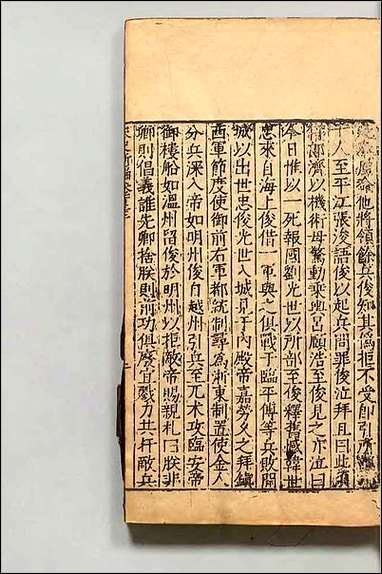 他將領餘兵俊知其僞拒不受即引所
千人至平江張浚語俊以起兵問罪俊泣拜且曰此須
濟以機術毋驚動乘輿呂頤浩至俊見之亦泣曰
今日惟以一死報國劉光世以所部至俊釋舊憾韓世
忠來自海上俊借一軍與之俱戰于臨平傅等兵敗開
城以出世忠俊光世入城見于內殿帝嘉勞久之拜鎮
西軍節度使御前右軍都統制尋爲浙東制置使金人
分兵深入帝如明州俊自越州引兵至兀术攻臨安帝
御樓船如溫州留俊於明州以拒敵帝賜親札曰朕非
卿則倡義誰先卿捨朕則前功俱廢宜戮力共扞敵兵